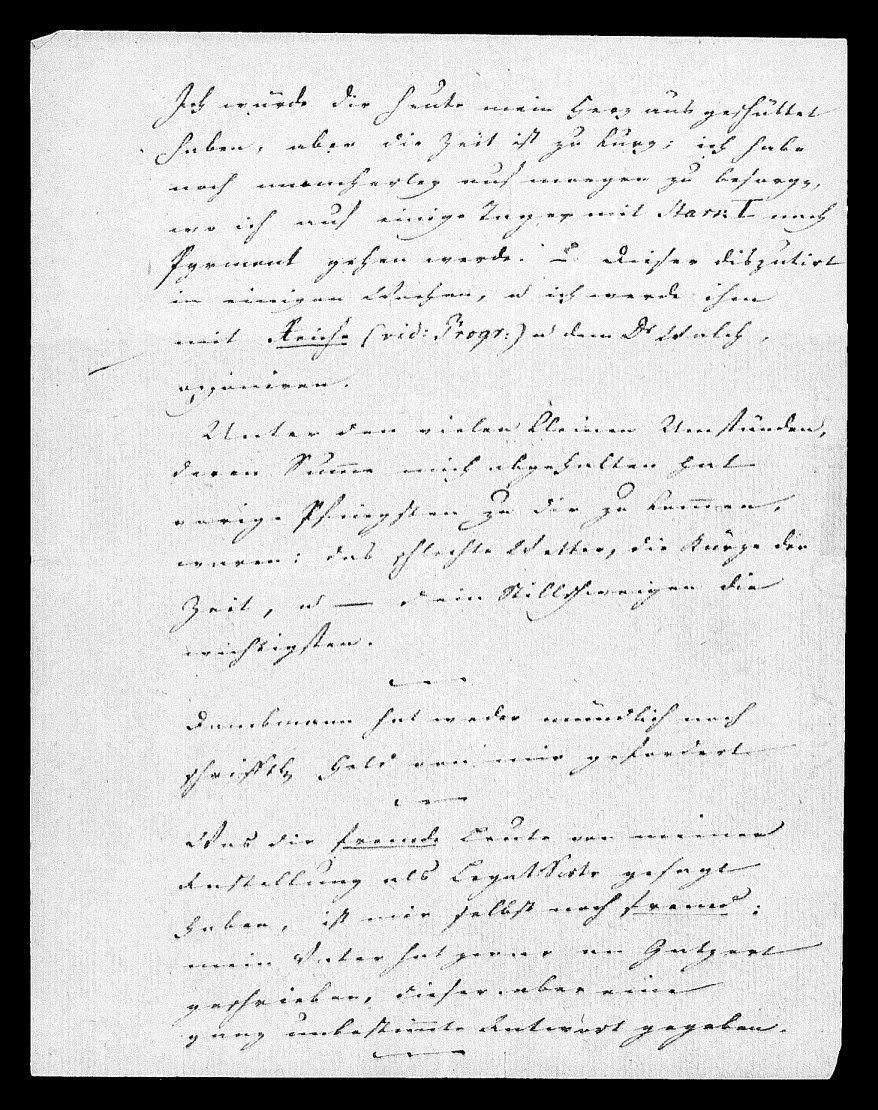 Ich würde dir heute mein Herz ausgeschüttet
haben, aber die Zeit ist zu kurz; ich habe
noch mancherley auf morgen zu besorgen,
wo ich auf einige Tage mit Stark I nach
Pyrmont gehen werde. Dieser disputirt
in einigen Wochen, u ich werde ihm
mit Reiche (vid: Progr:) u dem Dr Walch,
opponiren.
Unter den vielen kleinen Umständen,
deren Sume mich abgehalten hat
vorige Pfingsten zu dir zu komen,
waren: das schlechte Wetter, die Kürze der
Zeit, u — dein Stillschweigen die
wichtigsten.
Dambmann hat weder mündlich noch
schriftl Geld von mir gefordert
Was die fremde Leute von meiner
Anstellung als LegatSecr gesagt
haben, ist mir selbst noch fremd;
mein Vater hat zwar an
geschrieben, dieser aber eine
ganz unbestimte Antwort gegeben.